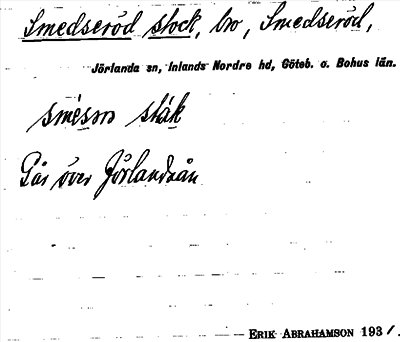 Smedseröd stock, bro, Smedseröd,
Jörlanda sn, Inlands Nordre hd, Göteb. o. Bohus län.
smèsrn ståk
Går över Jörlandaån
ERIK ABRAHAMSON 1931.